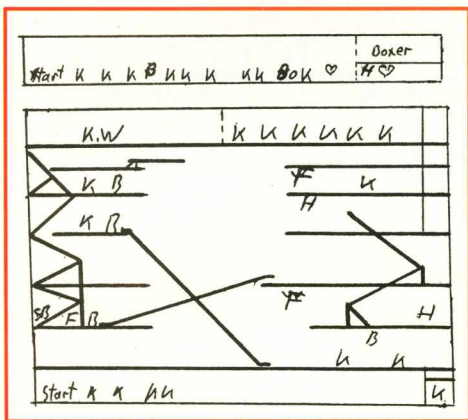 Boxer
Start K K K B K K K K K BoK ♡ H ♡
K.W K K K K K K
K B F K
H
K B
F
SB F B H
B
K K
Start K K K K K